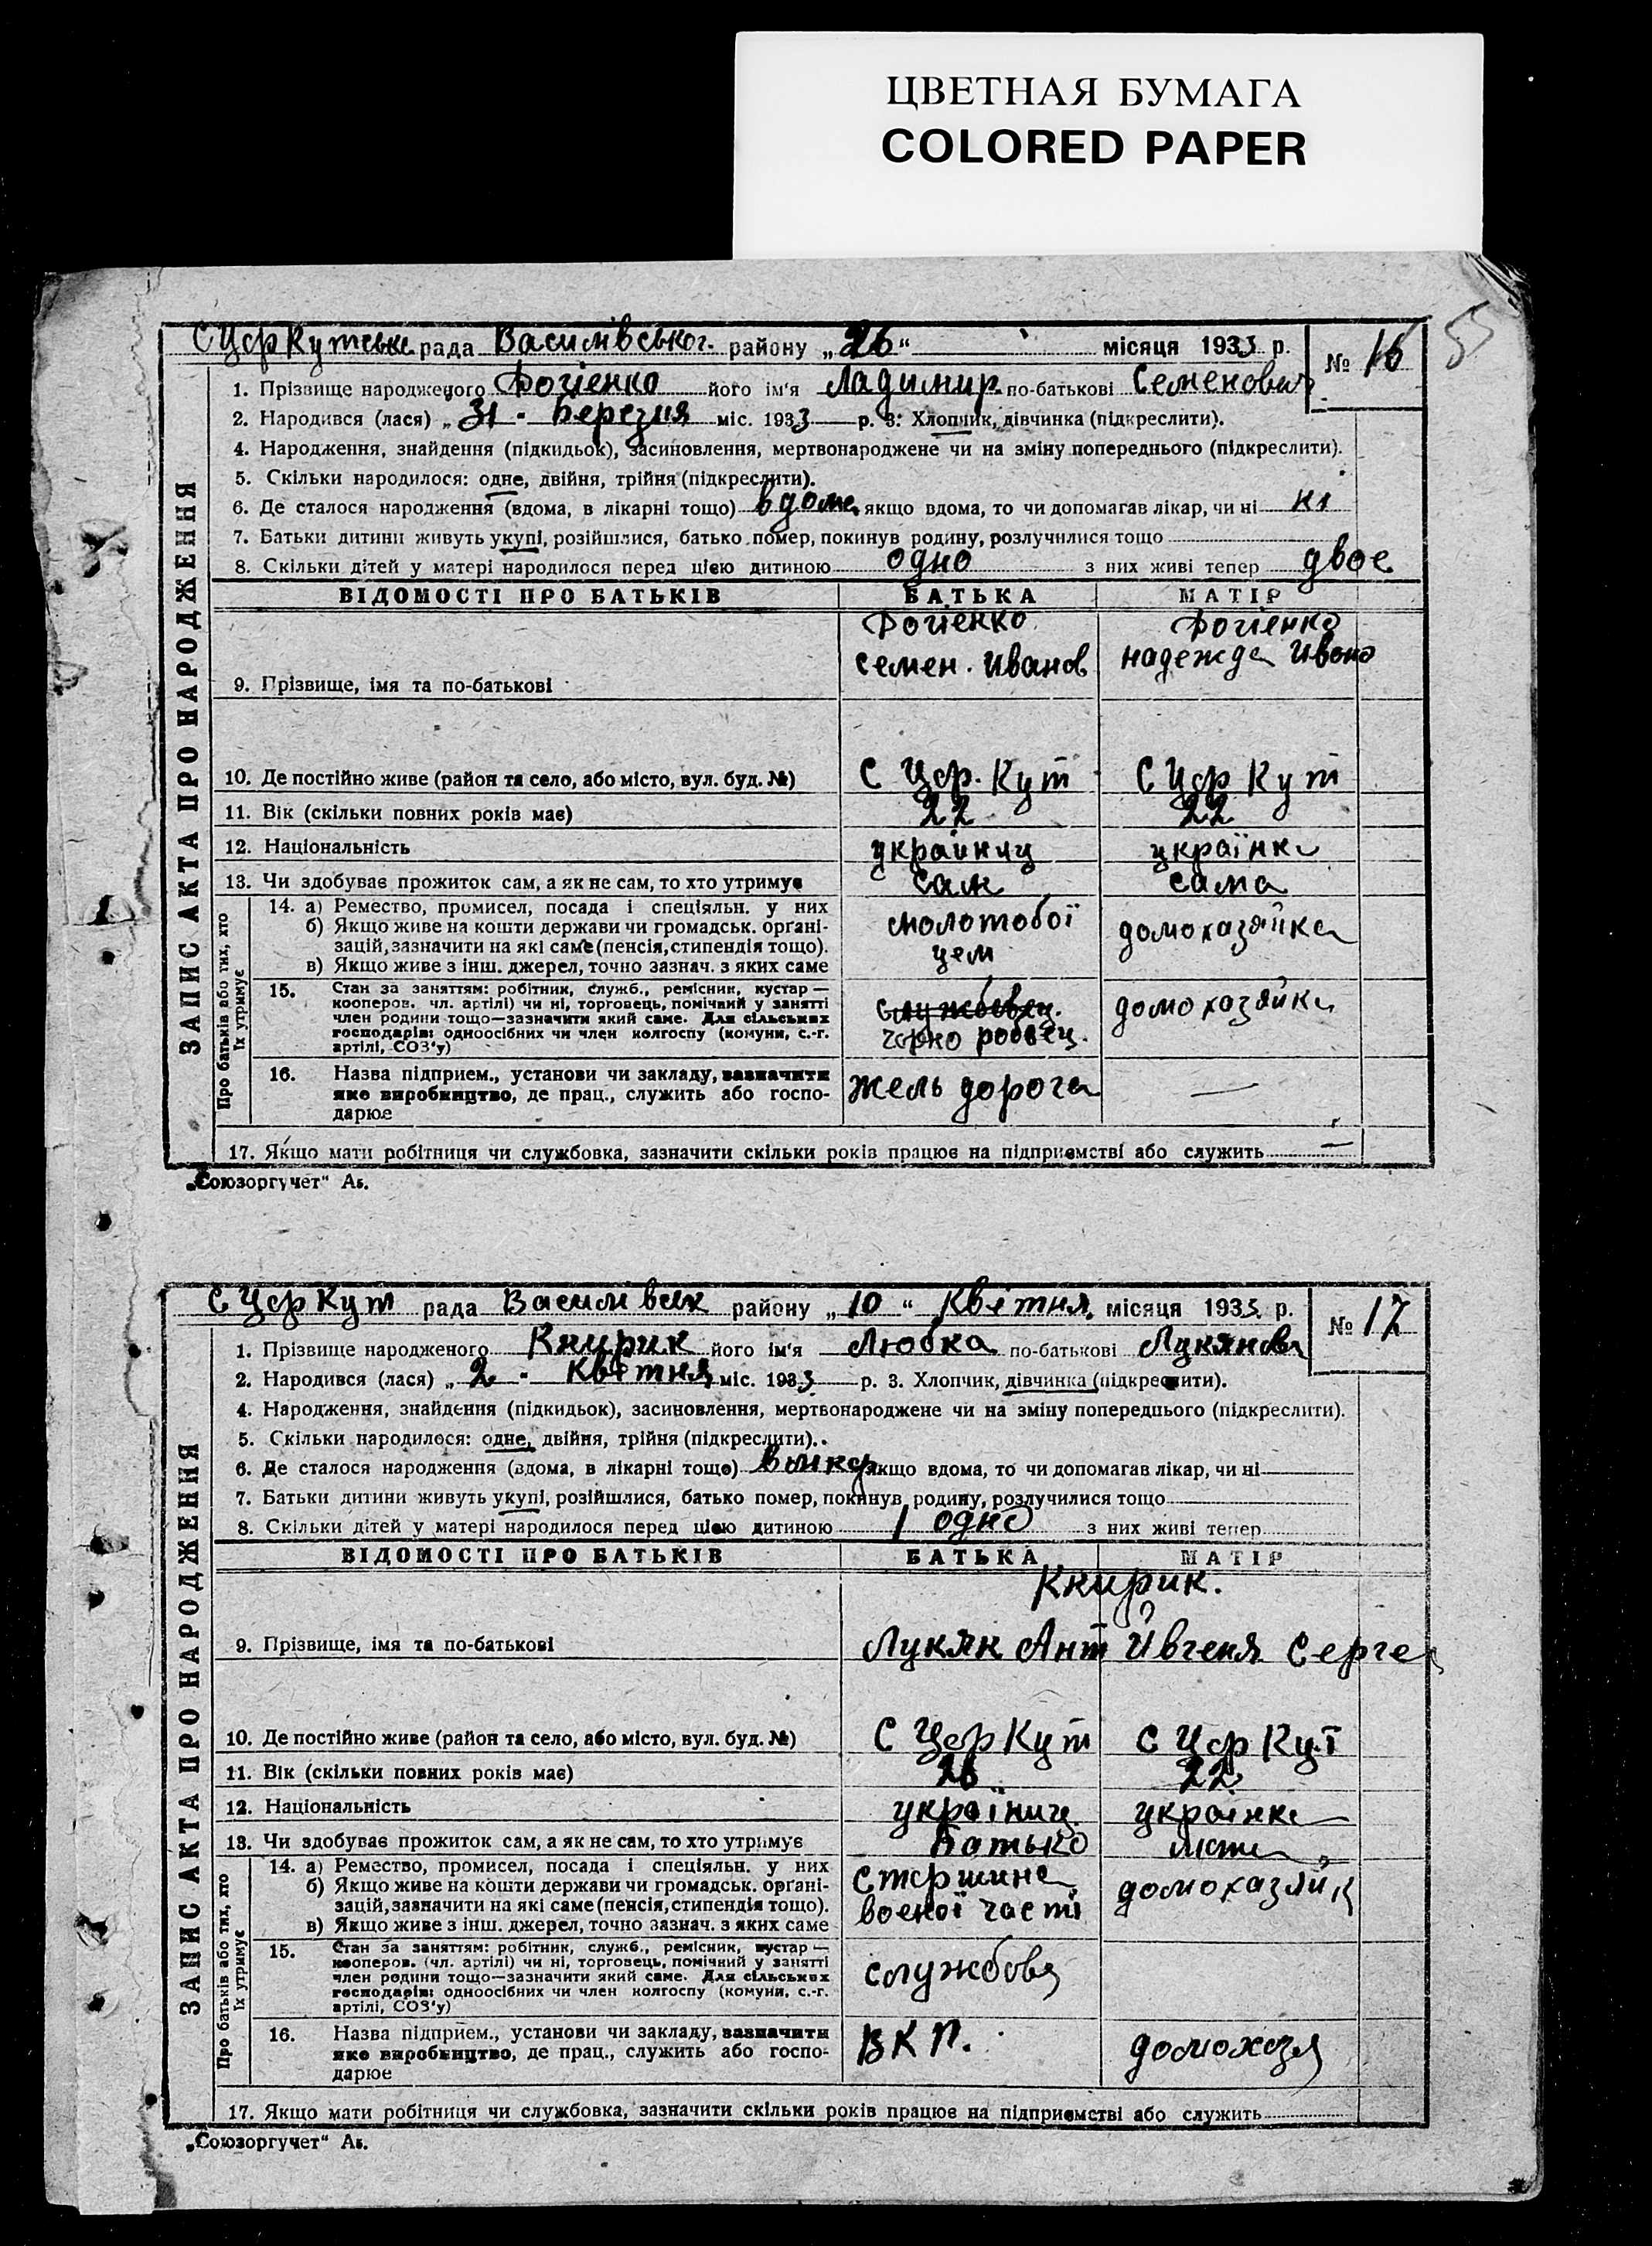 ЦВЕТНАЯ БУМАГА
COLORED PAPER
55
С Цар Кутська рада Василівськог. району „26“ місяця 1933 р. № 16
1. Прізвище народженого Фоцієнко його ім'я Ладимир по-батькові Семенович
2. Народився (лася) „31 - Березня міс. 1933 р. 3: Хлопчик, дівчинка (підкреслити).
4. Народження, знайдення (підкидьок), засиновлення, мертвонароджене чи на зміну попереднього (підкреслити).
5. Скільки народилося: одне, двійня, трійня (підкреслити).
6. Де сталося народження (вдома, в лікарні тощо) вдома якщо вдома, то чи допомагав лікар, чи ні ні
7. Батьки дитини живуть укупі, розійшлися, батько помер, покинув родину, розлучилися тощо
8. Скільки дітей у матері народилося перед цією дитиною одно з них живі тепер двое
ЗАПИС АКТА ПРО НАРОДЖЕННЯ
ВІДОМОСТІ ПРО БАТЬКІВ БАТЬКА МАТІР
Фоцієнко Фоцієнко
семен. Иванов надежда Ивано
9. Прізвище, імя та по-батькові
10. Де постійно живе (район та село, або місто, вул. буд. №) С Цар. Кут С Цар Кут
11. Вік (скільки повних років має) 22 22
12. Національність українец українка
13. Чи здобуває прожиток сам, а як не сам, то хто утримує Сам сама
Про батьків або тих, хто їх утримує
14. а) Ремество, промисел, посада і спеціяльн. у них
б) Якщо живе на кошти держави чи громадськ. органі-
зацій, зазначити на які саме (пенсія, стипендія тощо).
в) Якщо живе з інш. джерел, точно зазнач. з яких саме
молотобої домохазяйка
цем
15. Стан за заняттям: робітник, служб., ремісник, кустар —
кооперов. чл. артілі) чи ні, торговець, помічний у занятті
член родини тощо—зазначити який саме. Для сільських
господарів: одноосібних чи член колгоспу (комуни, с.-г.
артілі, СОЗ'у)
службовец. домохазяйка
чорно робоец.
16. Назва підприєм., установи чи закладу, зазначити
яке виробництво, де прац., служить або госпо-
дарює
жель дорога —
17. Якщо мати робітниця чи службовка, зазначити скільки років працює на підприємстві або служить —
„Союзоргучет“ Аг.
С Цар Кут рада Василівськ району „10“ Квітня місяця 1933 р. № 17
1. Прізвище народженого Книрик його ім'я Любка по-батькові Лукянова
2. Народився (лася) „2 - Квітня міс. 1933 р. 3. Хлопчик, дівчинка (підкреслити).
4. Народження, знайдення (підкидьок), засиновлення, мертвонароджене чи на зміну попереднього (підкреслити).
5. Скільки народилося: одне, двійня, трійня (підкреслити).
6. Де сталося народження (вдома, в лікарні тощо) в лікар якщо вдома, то чи допомагав лікар, чи ні
7. Батьки дитини живуть укупі, розійшлися, батько помер, покинув родину, розлучилися тощо
8. Скільки дітей у матері народилося перед цією дитиною 1 одно з них живі тепер
ЗАПИС АКТА ПРО НАРОДЖЕННЯ
ВІДОМОСТІ ПРО БАТЬКІВ БАТЬКА МАТІР
Книрик.
9. Прізвище, імя та по-батькові Лукян Ант Ивгеня Серге
10. Де постійно живе (район та село, або місто, вул. буд. №) С Цар Кут С Цар Кут
11. Вік (скільки повних років має) 26 22
12. Національність україниц українка
13. Чи здобуває прожиток сам, а як не сам, то хто утримує Батько мати
Про батьків або тих, хто їх утримує
14. а) Ремество, промисел, посада і спеціяльн. у них
б) Якщо живе на кошти держави чи громадськ. органі-
зацій, зазначити на які саме (пенсія, стипендія тощо).
в) Якщо живе з інш. джерел, точно зазнач. з яких саме
старшина домохазяйк
военої части
15. Стан за заняттям: робітник, служб., ремісник, кустар —
кооперов. (чл. артілі) чи ні, торговець, помічний у занятті
член родини тощо—зазначити який саме. Для сільських
господарів: одноосібних чи член колгоспу (комуни, с.-г.
артілі, СОЗ'у)
службовец
16. Назва підприєм., установи чи закладу, зазначити
яке виробництво, де прац., служить або госпо-
дарює
ВКП. домохазя
17. Якщо мати робітниця чи службовка, зазначити скільки років працює на підприємстві або служить
„Союзоргучет“ Аг.